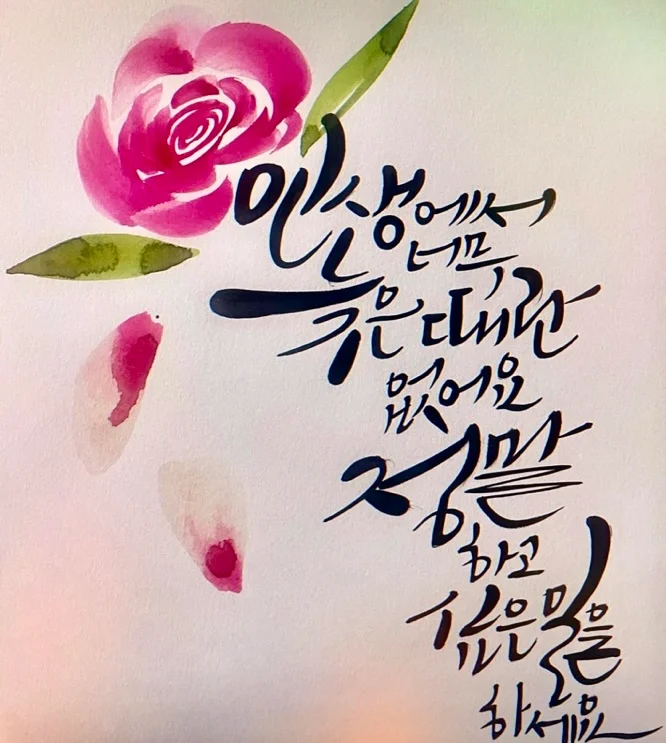 인생에서
너무
늦은 때란
없어요
정말
하고
싶은 일을
하세요